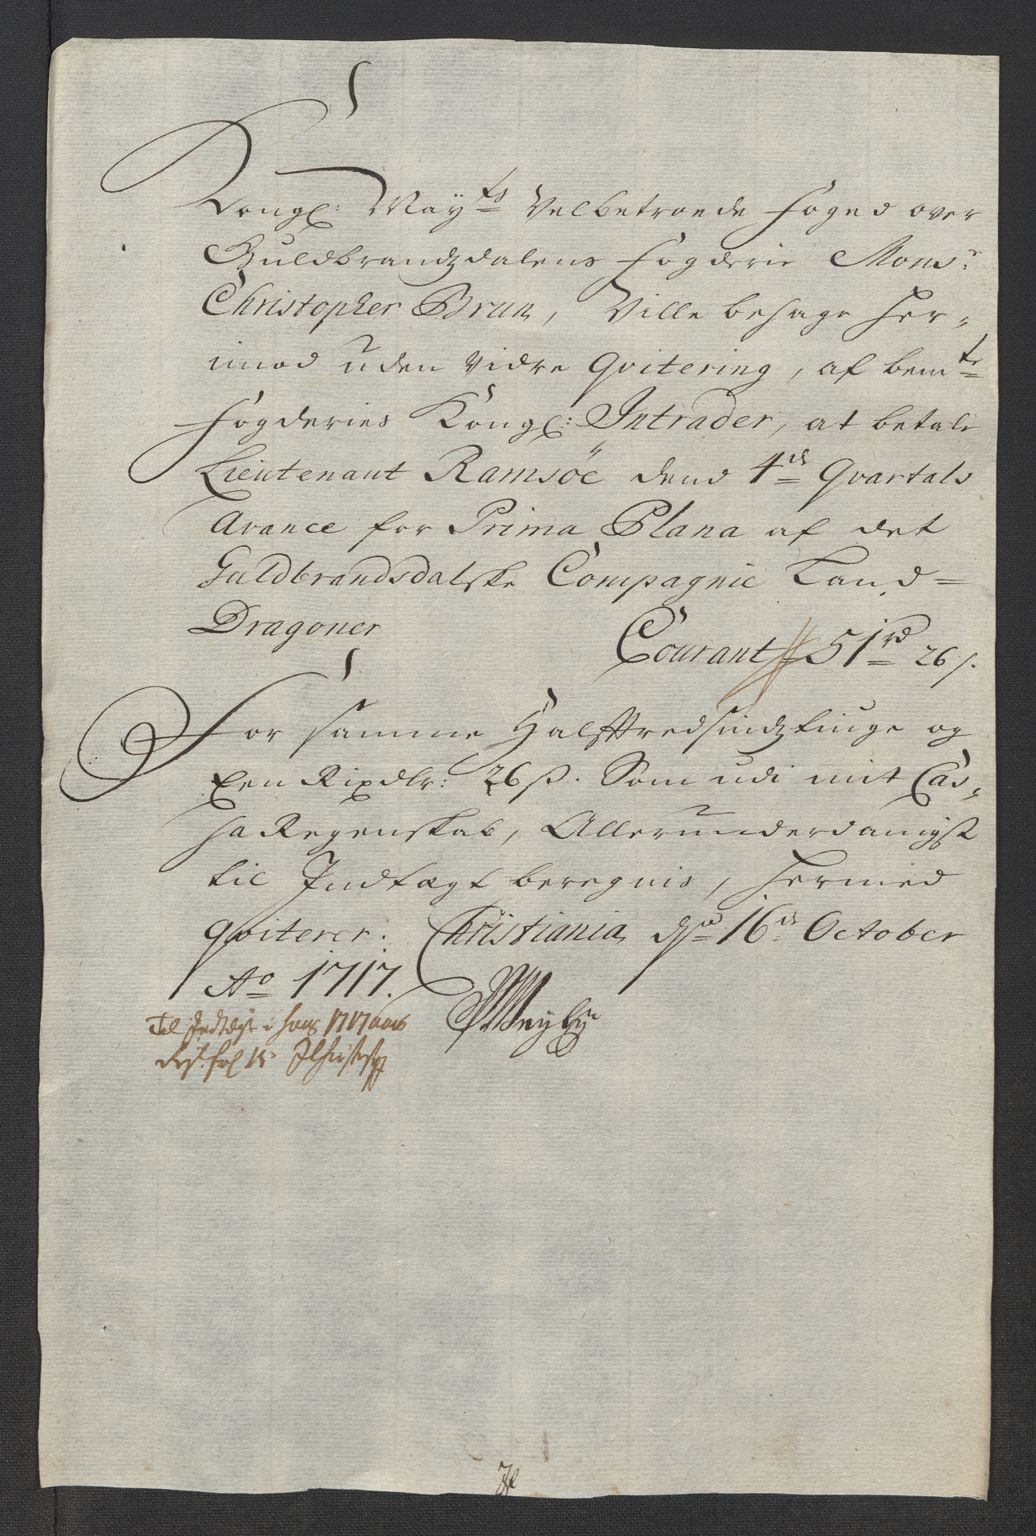 Kongl: Mayts Velbetroede foged over
Guldbrandzdalens fogderie Monsr
Christopher Brun, Ville behage her-
imod uden vidre Qvitering, af bemte
fogderies Kongl: Intrader, at betale
Lieutenant Ramsöe dend 4de Qvartals
Avance for Prima Plana af det
Guldbrandsdalske Compagnie Land=
Dragoner
Courant 51rd 26 s.
For samme Halftredsindztiuge og
Een Rixdlr: 26 s. Som udi mit Cas-
sa Regenskab, Allerunderdanigst
til Indtægt beregnis, hermed
qviterer. Christiania dend 16de October
Ao 1717.
Til Indtægt i hans 1717 aars